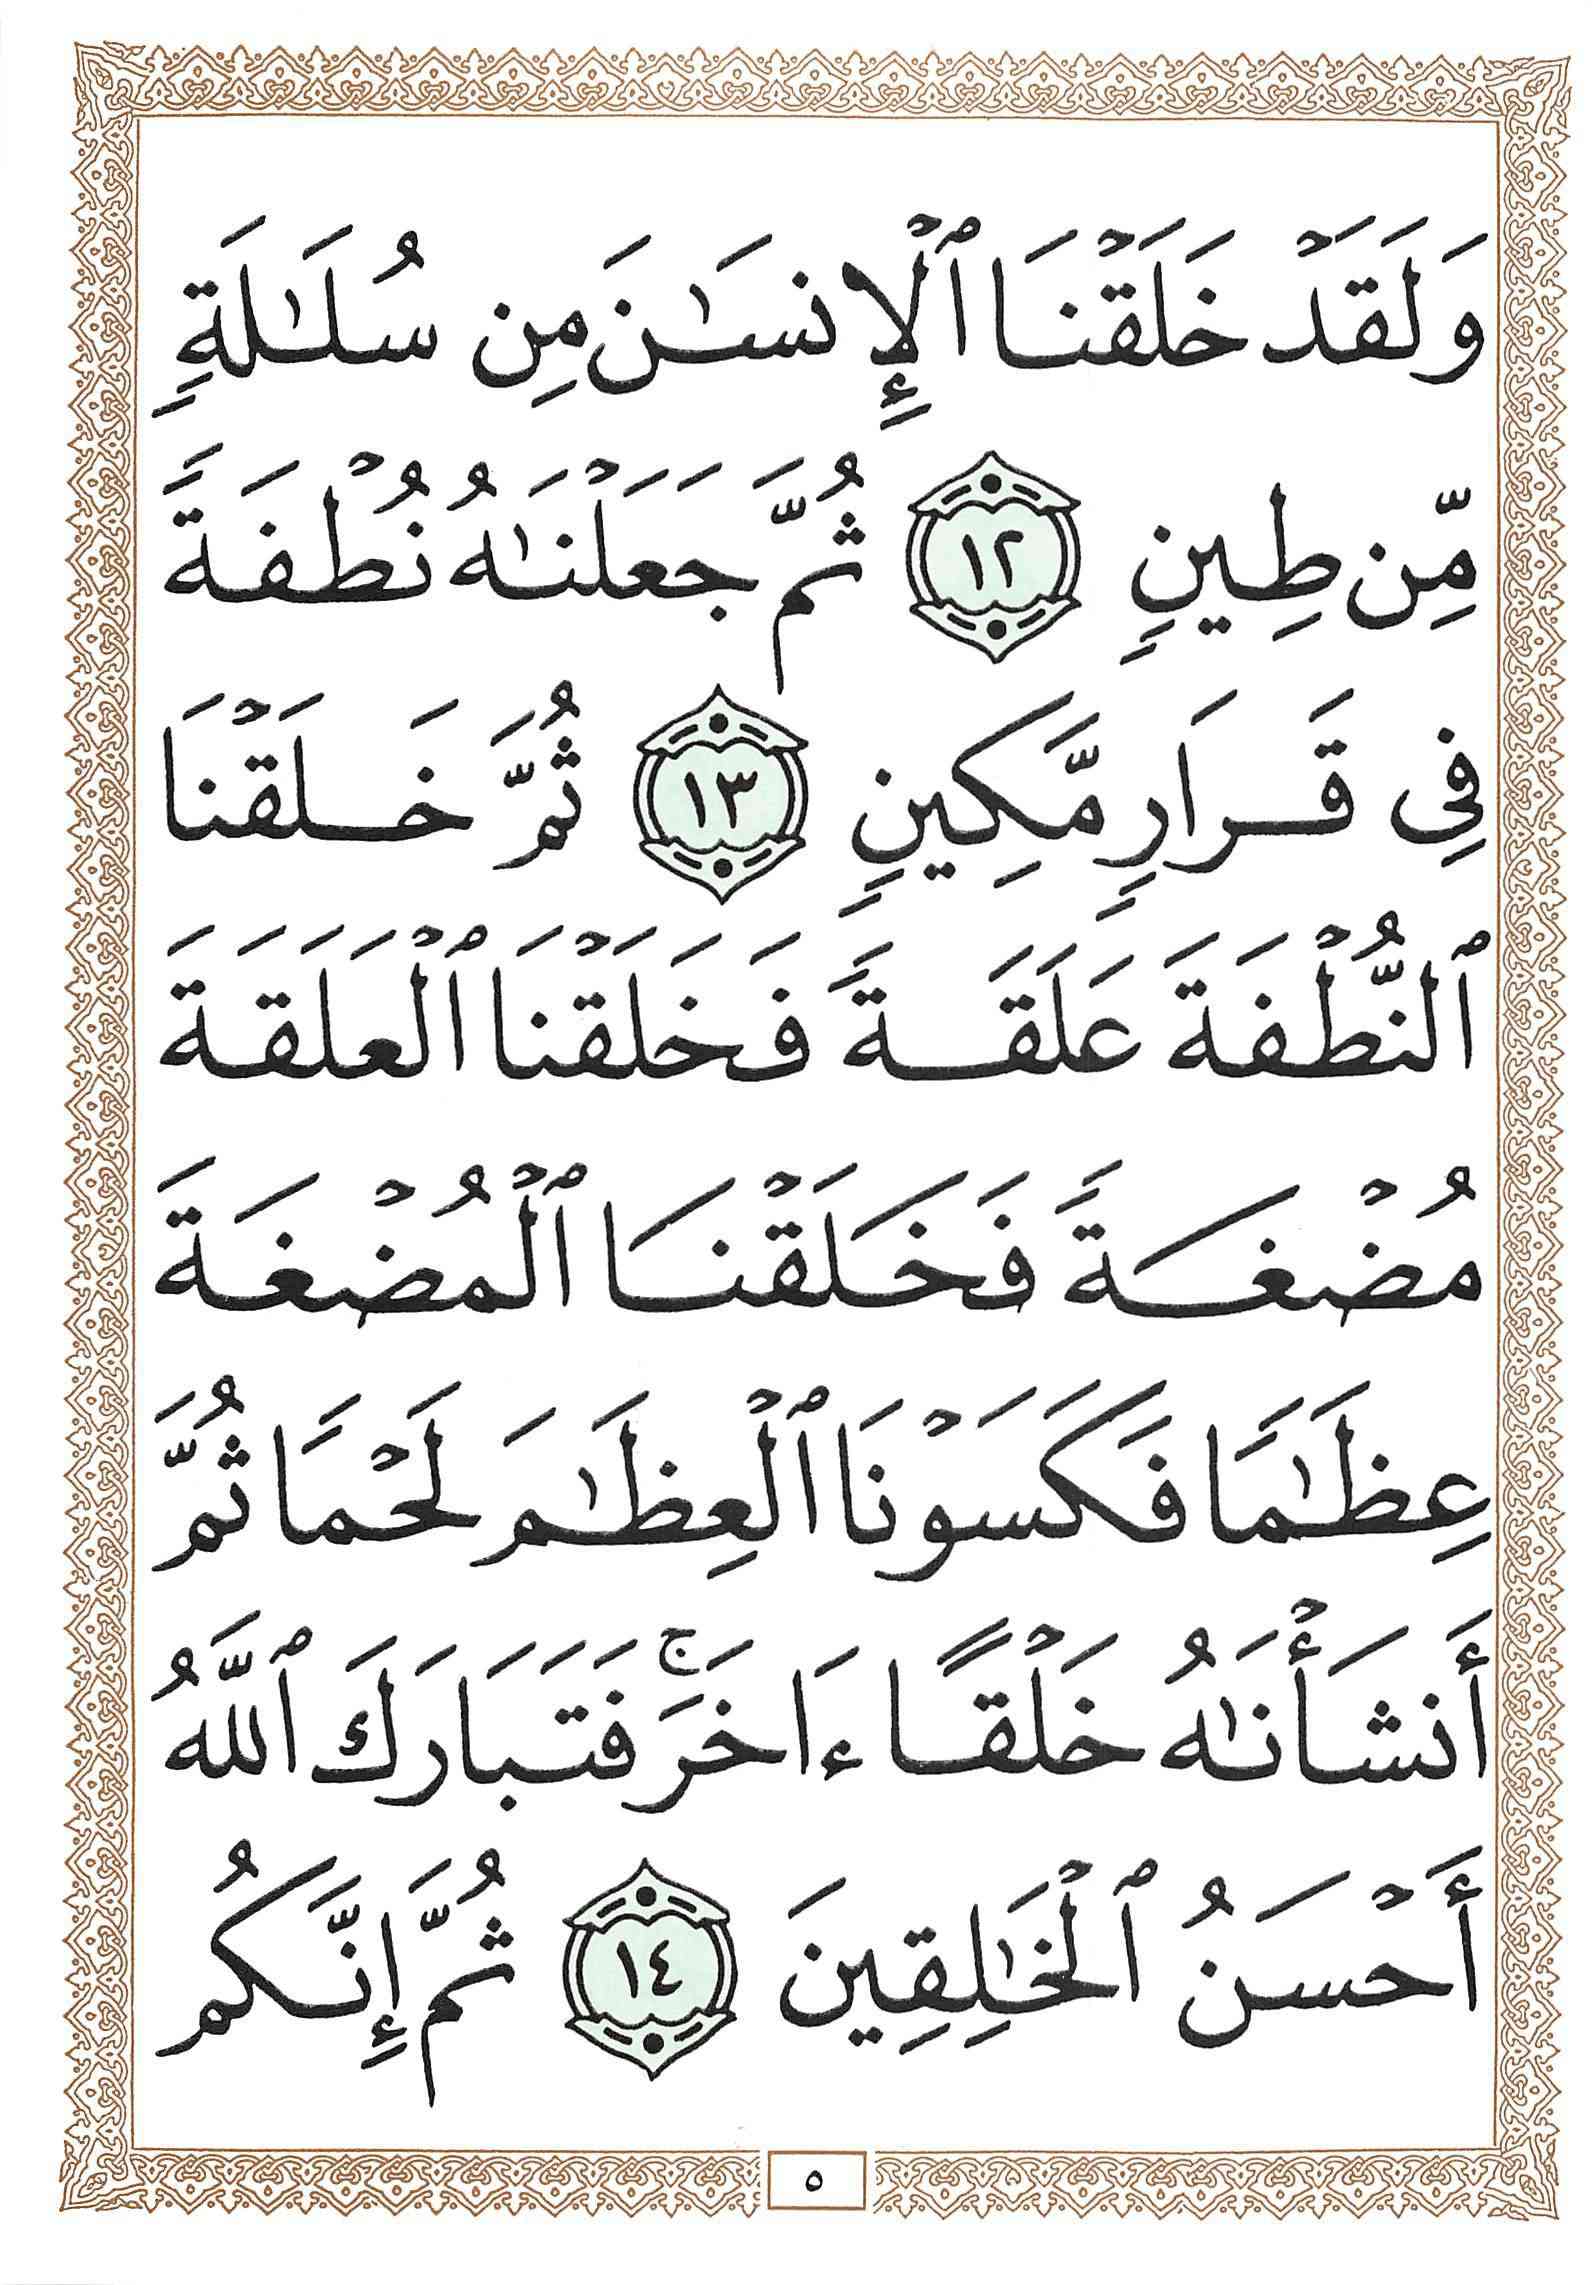 وَلَقَدْ خَلَقْنَا ٱلْإِنسَـٰنَ مِن سُلَـٰلَةٍ
مِّن طِينٍ ١٢ ثُمَّ جَعَلْنَـٰهُ نُطْفَةً
فِى قَرَارٍ مَّكِينٍ ١٣ ثُمَّ خَلَقْنَا
ٱلنُّطْفَةَ عَلَقَةً فَخَلَقْنَا ٱلْعَلَقَةَ
مُضْغَةً فَخَلَقْنَا ٱلْمُضْغَةَ
عِظَـٰمًا فَكَسَوْنَا ٱلْعِظَـٰمَ لَحْمًا ثُمَّ
أَنشَأْنَـٰهُ خَلْقًا ءَاخَرَ ۚ فَتَبَارَكَ ٱللَّهُ
أَحْسَنُ ٱلْخَـٰلِقِينَ ١٤ ثُمَّ إِنَّكُم
٥